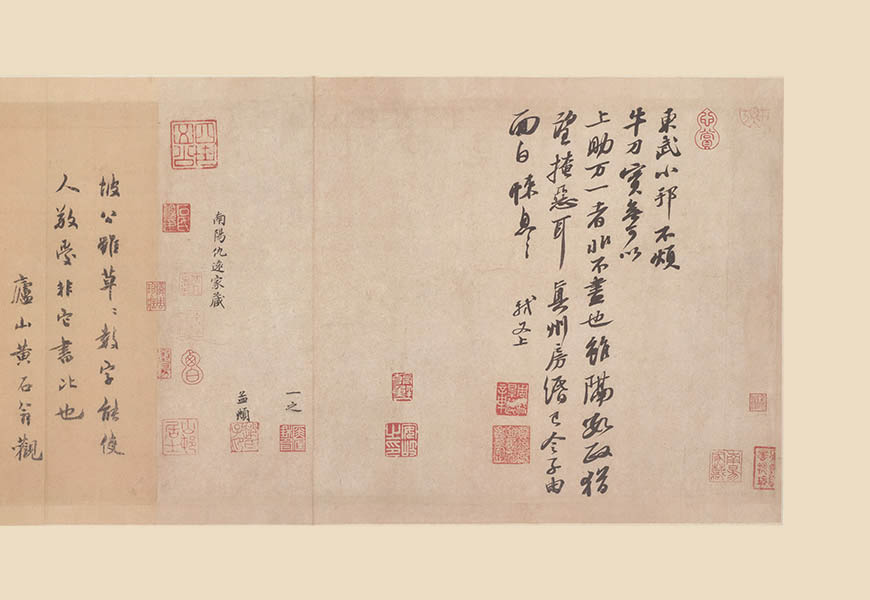 東武小邦不煩
牛刀實無可以
上助万一者非不盡也雖隔數政猶
望掩惡耳真州房緡已令子由
面白悚息〻 軾又上
一之
南陽仇遠家藏
坡公雖草〻數字能使
人敬愛非它書比也
廬山黃石翁觀